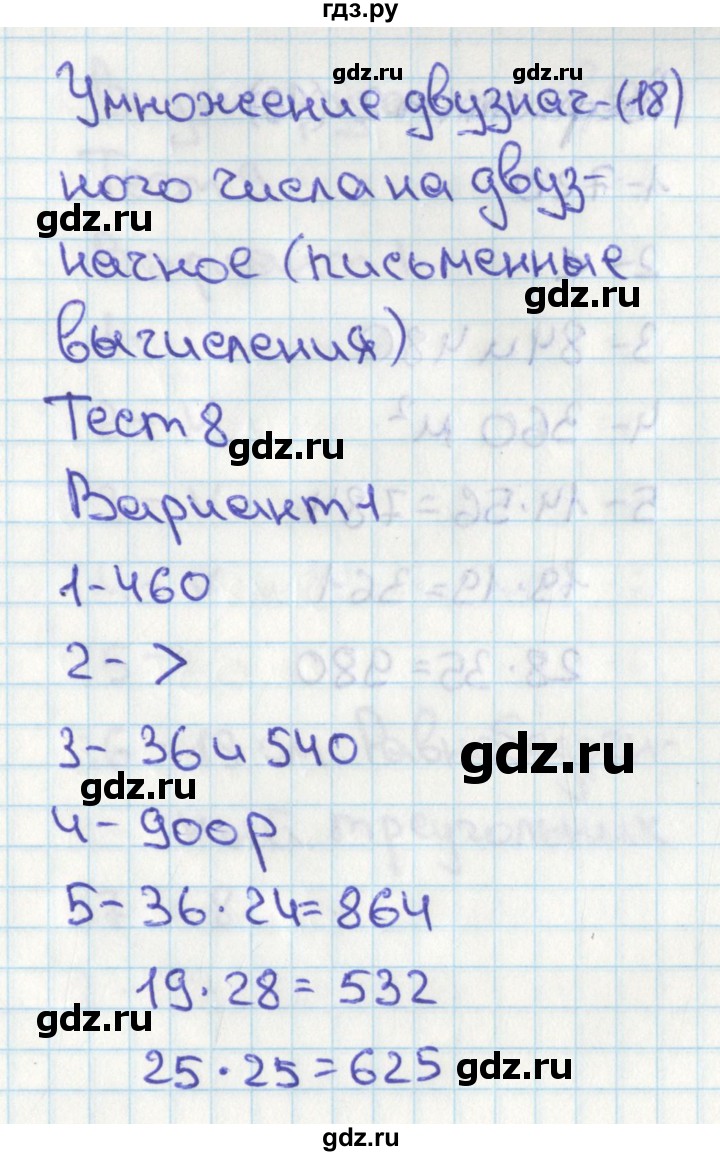 гдз.ру
gdz.ru gdz.ru
Умножение двузнач-(18)
ного числа на двуз-
gdz.ru
начное (письменные
gdz.ru
вычисления)
Тест 8
gdz.ru
Вариант 1
1-460
2- >
3- 36 и 540
gdz.ru
gdz.ru
4- 900 р
5- 36·24=864
19·28=532
gdz.ru
25·25=625 gdz.ru
gdz.ru